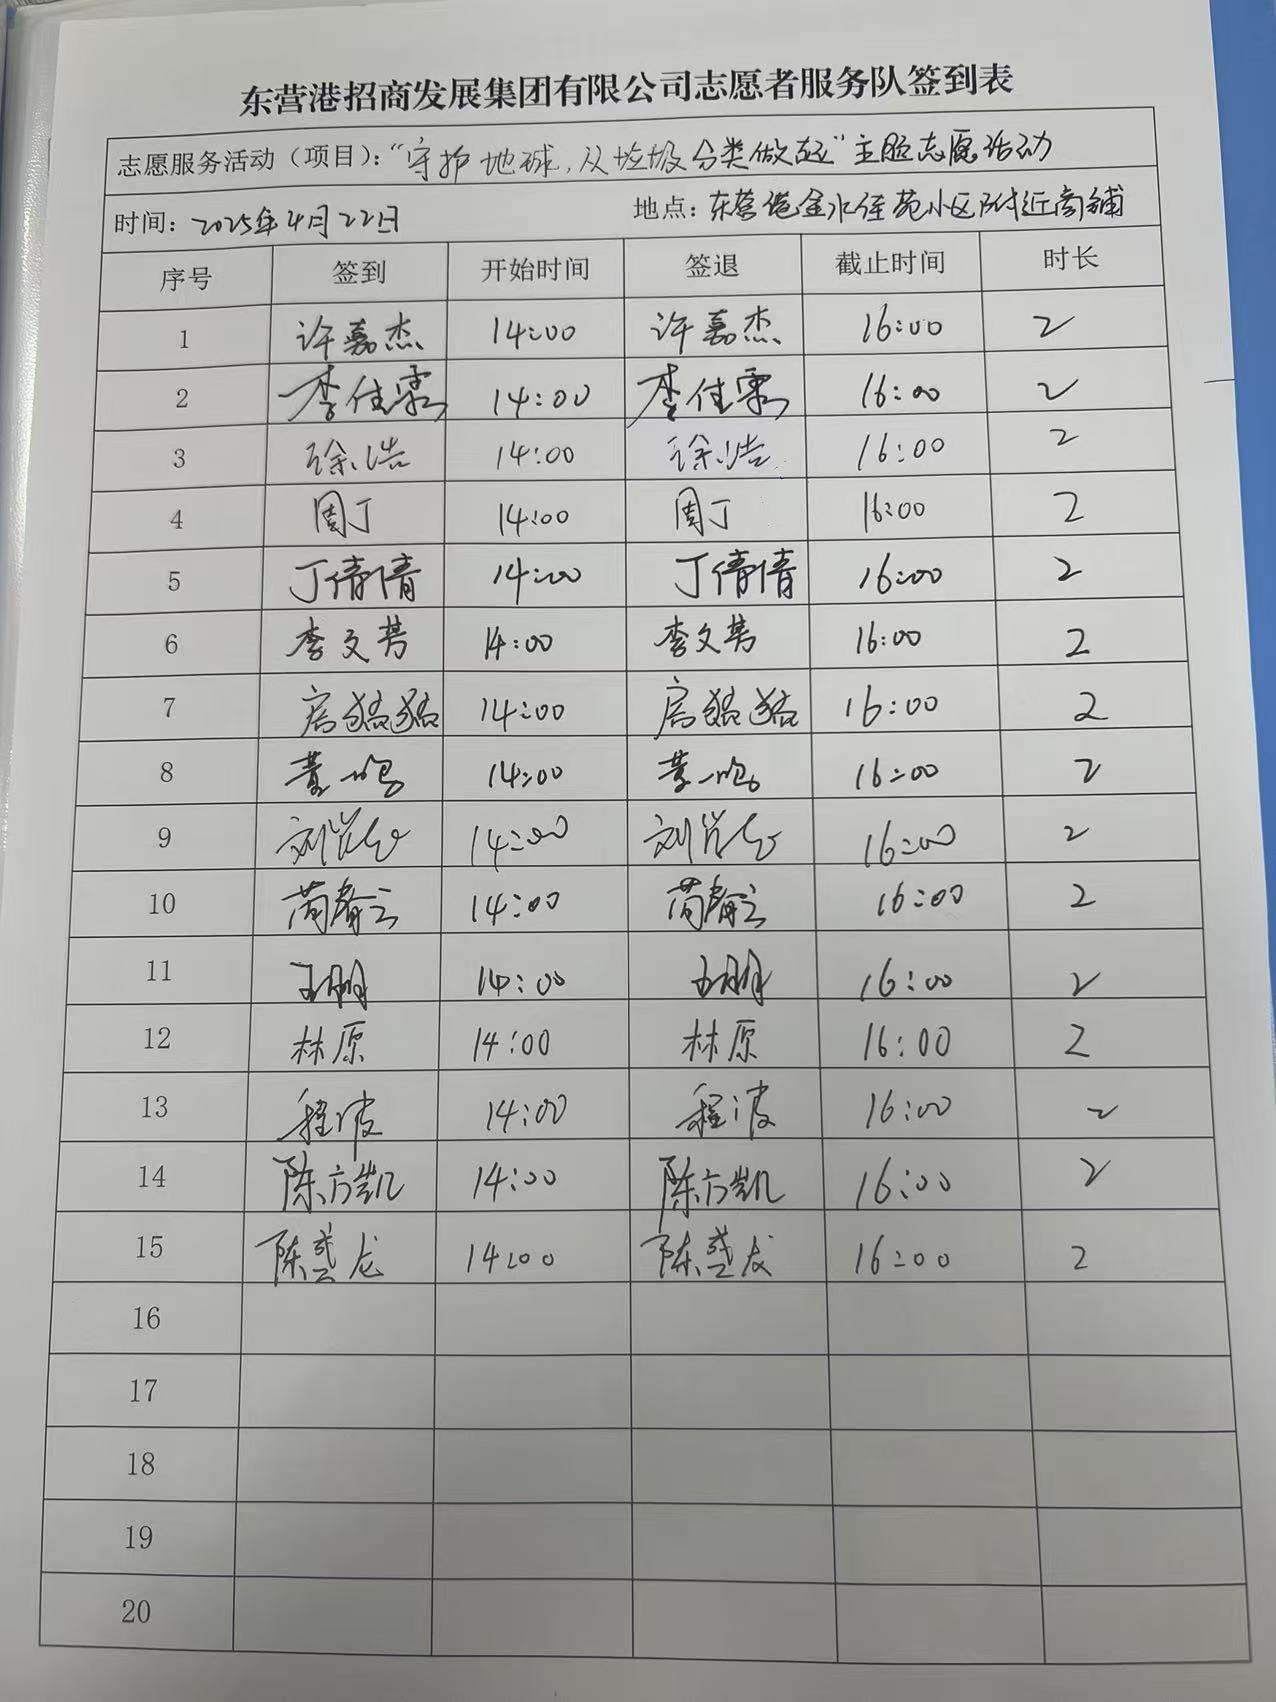 东营港招商发展集团有限公司志愿者服务队签到表
志愿服务活动（项目）：“守护地球，从垃圾分类做起”主题志愿活动
时间：2025年4月22日 地点：东营港金水佳苑小区附近商铺
序号 签到 开始时间 签退 截止时间 时长
1 许嘉杰 14:00 许嘉杰 16:00 2
2 李佳霖 14:00 李佳霖 16:00 2
3 徐浩 14:00 徐浩 16:00 2
4 周丁 14:00 周丁 16:00 2
5 丁倩倩 14:00 丁倩倩 16:00 2
6 李文 14:00 李文 16:00 2
7 房 14:00 房 16:00 2
8 一鸣 14:00 一鸣 16:00 2
9 刘 14:00 刘 16:00 2
10 14:00 16:00 2
11 王朋 14:00 王朋 16:00 2
12 林原 14:00 林原 16:00 2
13 程波 14:00 程波 16:00 2
14 陈方凯 14:00 陈方凯 16:00 2
15 陈盛龙 14:00 陈盛龙 16:00 2
16
17
18
19
20